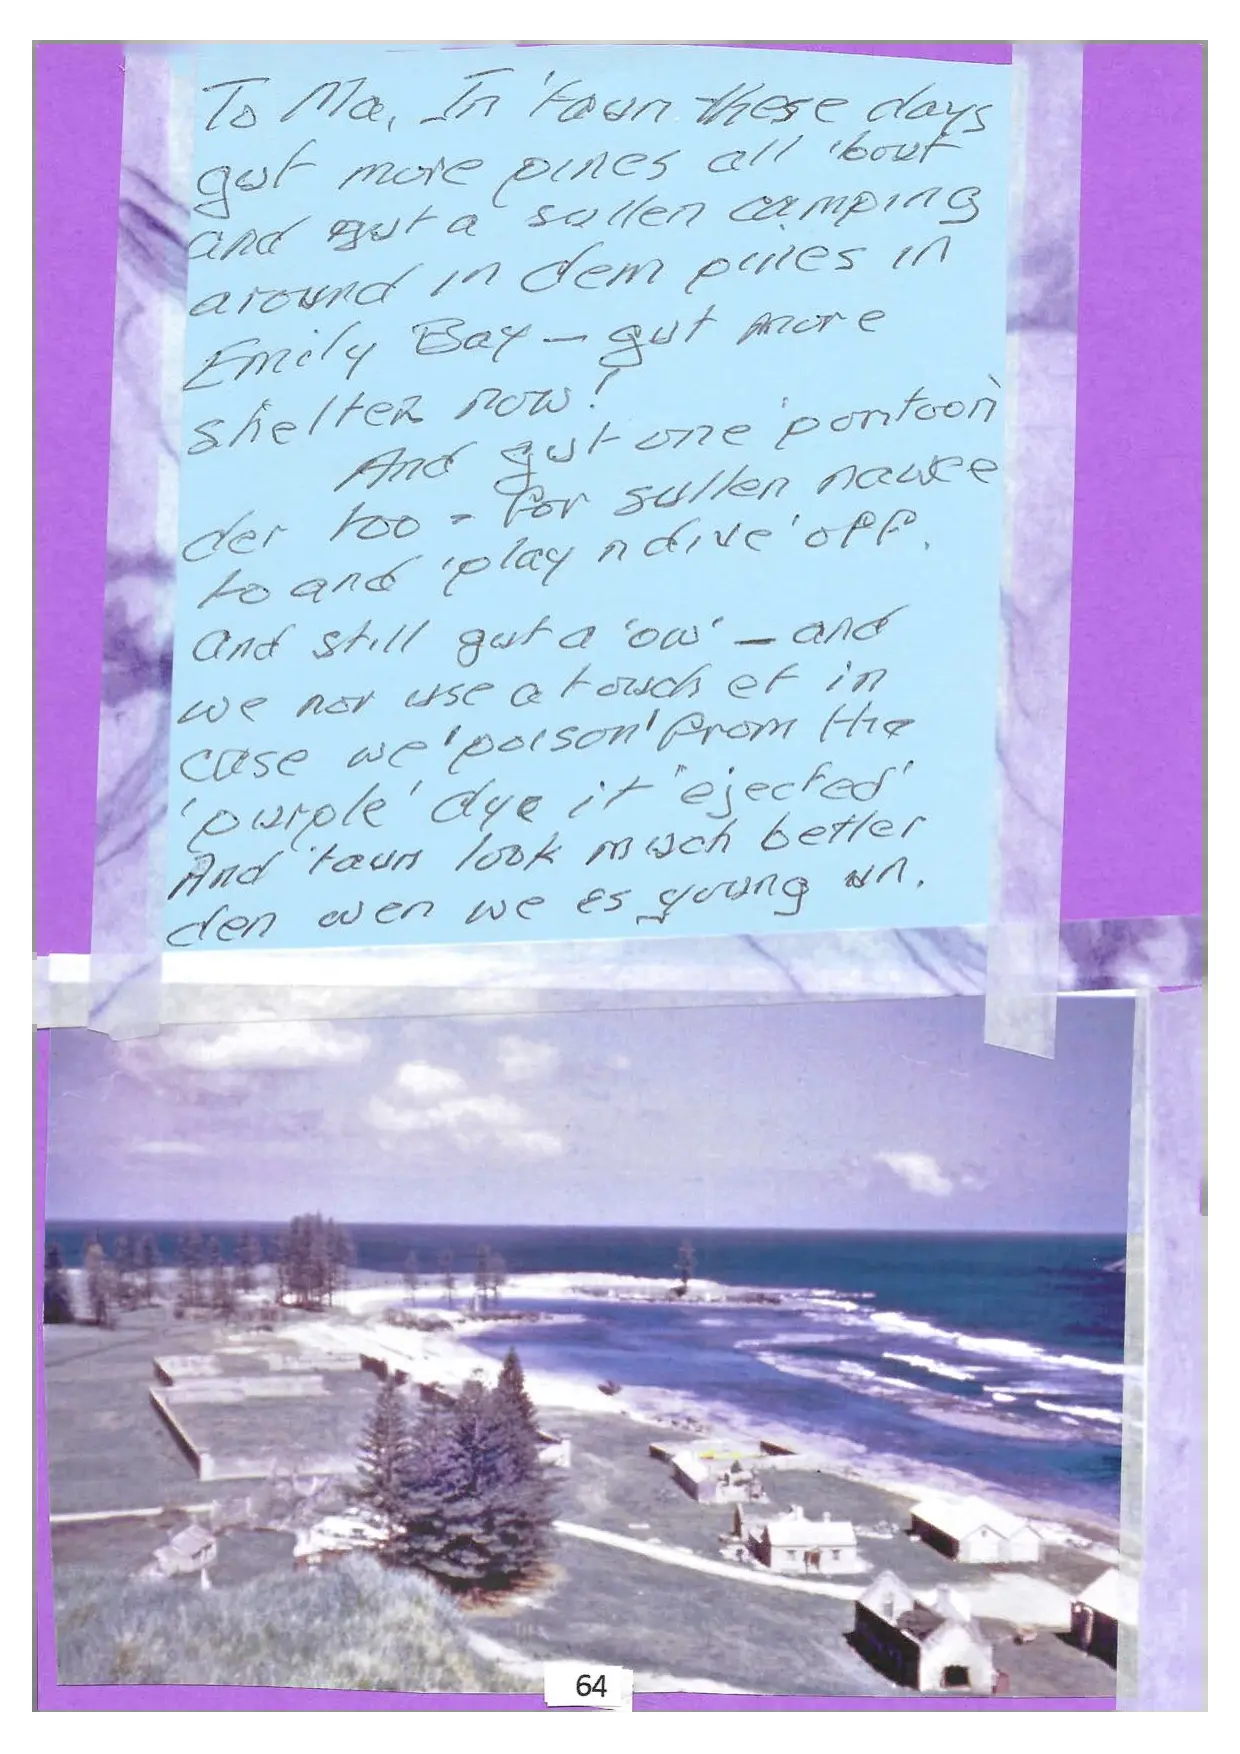 To Ma, In 'taun these days
gut more pines all 'bout
and gut a sullen camping
around in dem pines in
Emily Bay – gut more
shelter now!
And gut one 'pontoon'
der too - for sullen nawee
to and 'play n dive' off.
and still gut a 'ow' – and
we nor use a touch et in
case we 'poison' from the
'purple' dye it 'ejected'
And 'taun look much better
den wen we es young un.
64